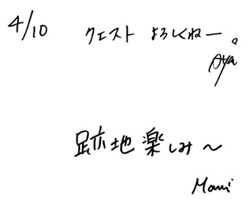 4/10 クエスト よろしくねー
Aya
跡地楽しみ～
Mami